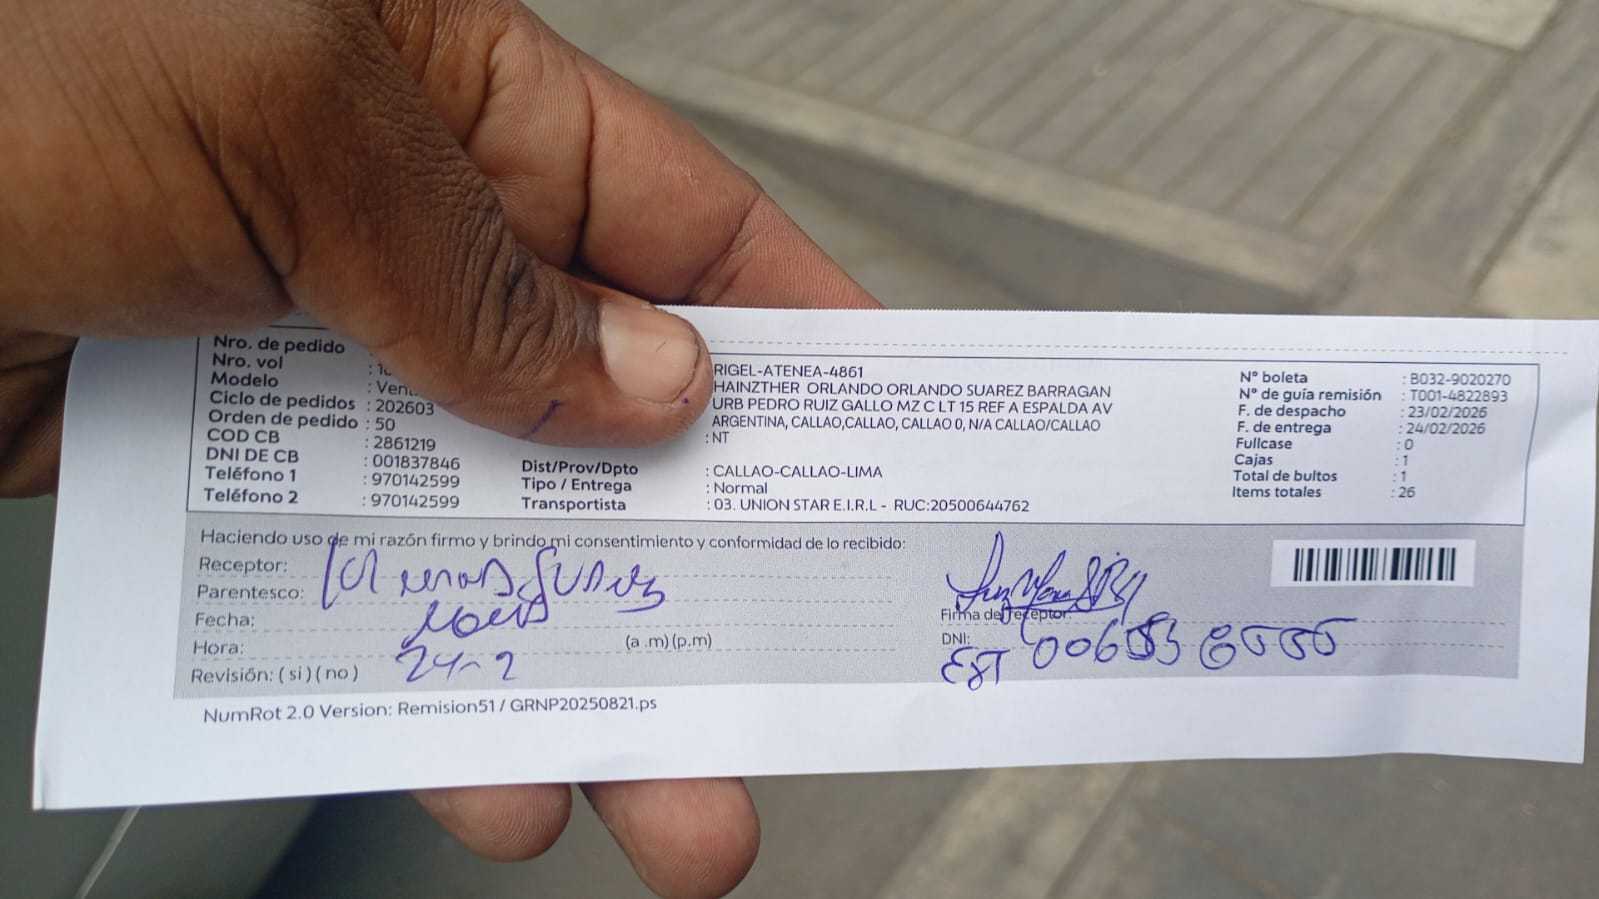 Nro. de pedido
Nro. vol : 10
Modelo : Vent
Ciclo de pedidos : 202603
Orden de pedido : 50
COD CB : 2861219
DNI DE CB : 001837846
Teléfono 1 : 970142599
Teléfono 2 : 970142599
RIGEL-ATENEA-4861
HAINZTHER ORLANDO ORLANDO SUAREZ BARRAGAN
URB PEDRO RUIZ GALLO MZ C LT 15 REF A ESPALDA AV
ARGENTINA, CALLAO,CALLAO, CALLAO 0, N/A CALLAO/CALLAO
: NT
Dist/Prov/Dpto : CALLAO-CALLAO-LIMA
Tipo / Entrega : Normal
Transportista : 03. UNION STAR E.I.R.L - RUC:20500644762
N° boleta : B032-9020270
N° de guía remisión : T001-4822893
F. de despacho : 23/02/2026
F. de entrega : 24/02/2026
Fullcase : 0
Cajas : 1
Total de bultos : 1
Items totales : 26
Haciendo uso de mi razón firmo y brindo mi consentimiento y conformidad de lo recibido:
Receptor:
Parentesco:
Fecha:
Hora: 24-2 (a .m) (p.m)
Revisión: ( si ) ( no )
Firma del receptor:
DNI:
EXT
NumRot 2.0 Version: Remision51 / GRNP20250821.ps